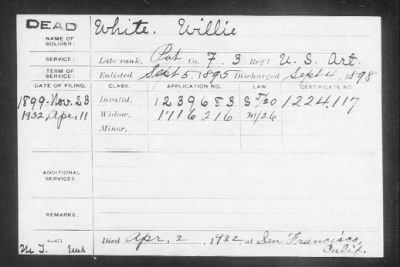 DEAD
NAME OF SOLDIER:
White. Willie
SERVICE:
Late rank, Pvt Co. F. 3 Reg't U. S. Art.
TERM OF SERVICE:
Enlisted Sept 5, 1895 Discharged Sept 4, 1898
DATE OF FILING. CLASS. APPLICATION NO. LAW. CERTIFICATE NO.
1899. Nov. 23 Invalid, 1239683 1224,117
1932, Apr, 11 Widow, 1716216 M/26
Minor,
ADDITIONAL SERVICES.
REMARKS.
Died Apr. 2, 1932, at San Francisco, Calif.